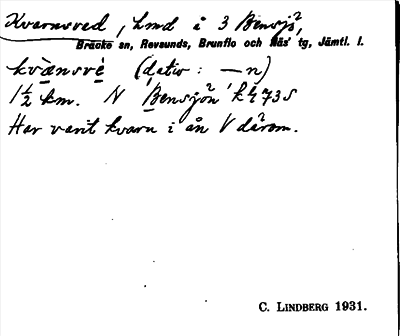 Kvarnsved, hmd å 3 Bensjö,
Bräcke sn, Revsunds, Brunflo och Näs' tg, Jämtl. l.
kvænsvè (dativ: —n)
1½ km. N Bensjön kh 73 s
Har varit kvarn i ån V därom.
C. LINDBERG 1931.